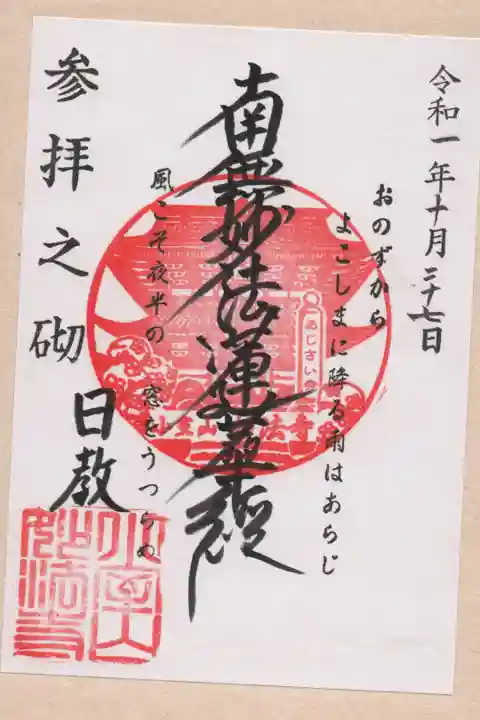 令和一年十月二十七日
おのずから
よこしまに降る雨はあらじ
南無妙法蓮華経
風こそ夜半の
窓をうつらめ
あじさい
参拝之砌
日教
妙法寺